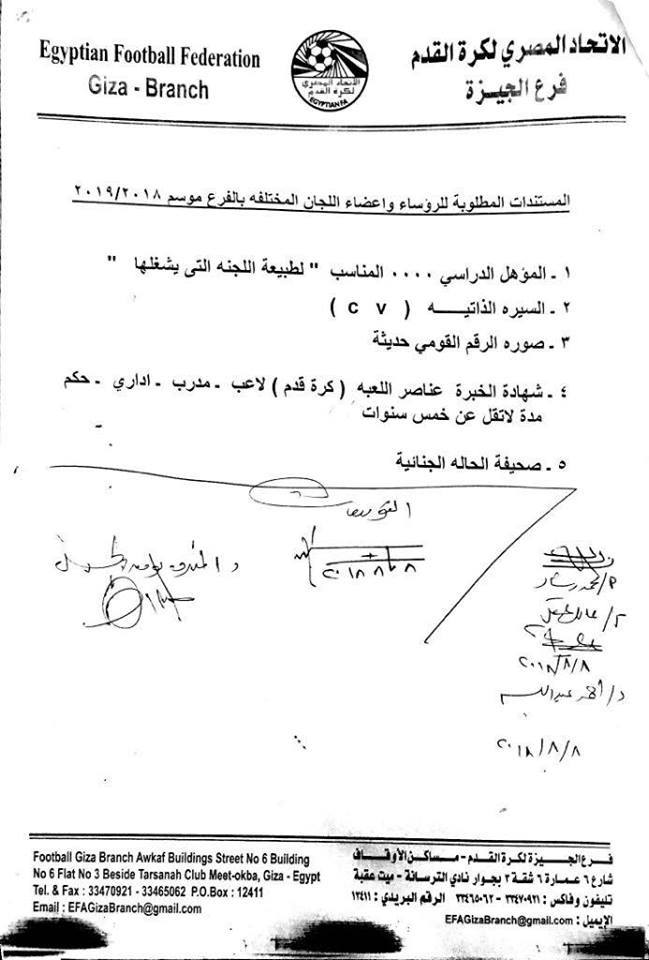 Egyptian Football Federation
Giza - Branch
الاتحاد المصري لكرة القدم
فرع الجيزة
الاتحاد المصري
لكرة القدم
EGYPTIAN FA
المستندات المطلوبة للرؤساء واعضاء اللجان المختلفه بالفرع موسم ٢٠١٩/٢٠١٨
١ - المؤهل الدراسي ٠٠٠٠ المناسب " لطبيعة اللجنه التى يشغلها "
٢ - السيره الذاتيـــــه ( c v )
٣ - صوره الرقم القومي حديثة
٤ - شهادة الخبرة عناصر اللعبه ( كرة قدم ) لاعب - مدرب - اداري - حكم
مدة لاتقل عن خمس سنوات
٥ - صحيفة الحاله الجنائية
٢٠١٨/٨/٨
م/ محمد رشاد
٢٠١٨/٨/٨
د/ أحمد
٢٠١٨/٨/٨
Football Giza Branch Awkaf Buildings Street No 6 Building
No 6 Flat No 3 Beside Tarsanah Club Meet-okba, Giza - Egypt
Tel. & Fax : 33470921 - 33465062 P.O.Box : 12411
Email : EFAGizaBranch@gmail.com
فرع الجيزة لكرة القدم - مساكن الأوقاف
شارع ٦ عمارة ٦ شقة ٣ بجوار نادي الترسانة - ميت عقبة
تليفون وفاكس : ٣٣٤٧٠٩٢١ - ٣٣٤٦٥٠٦٢ الرقم البريدي : ١٢٤١١
الإيميل : EFAGizaBranch@gmail.com